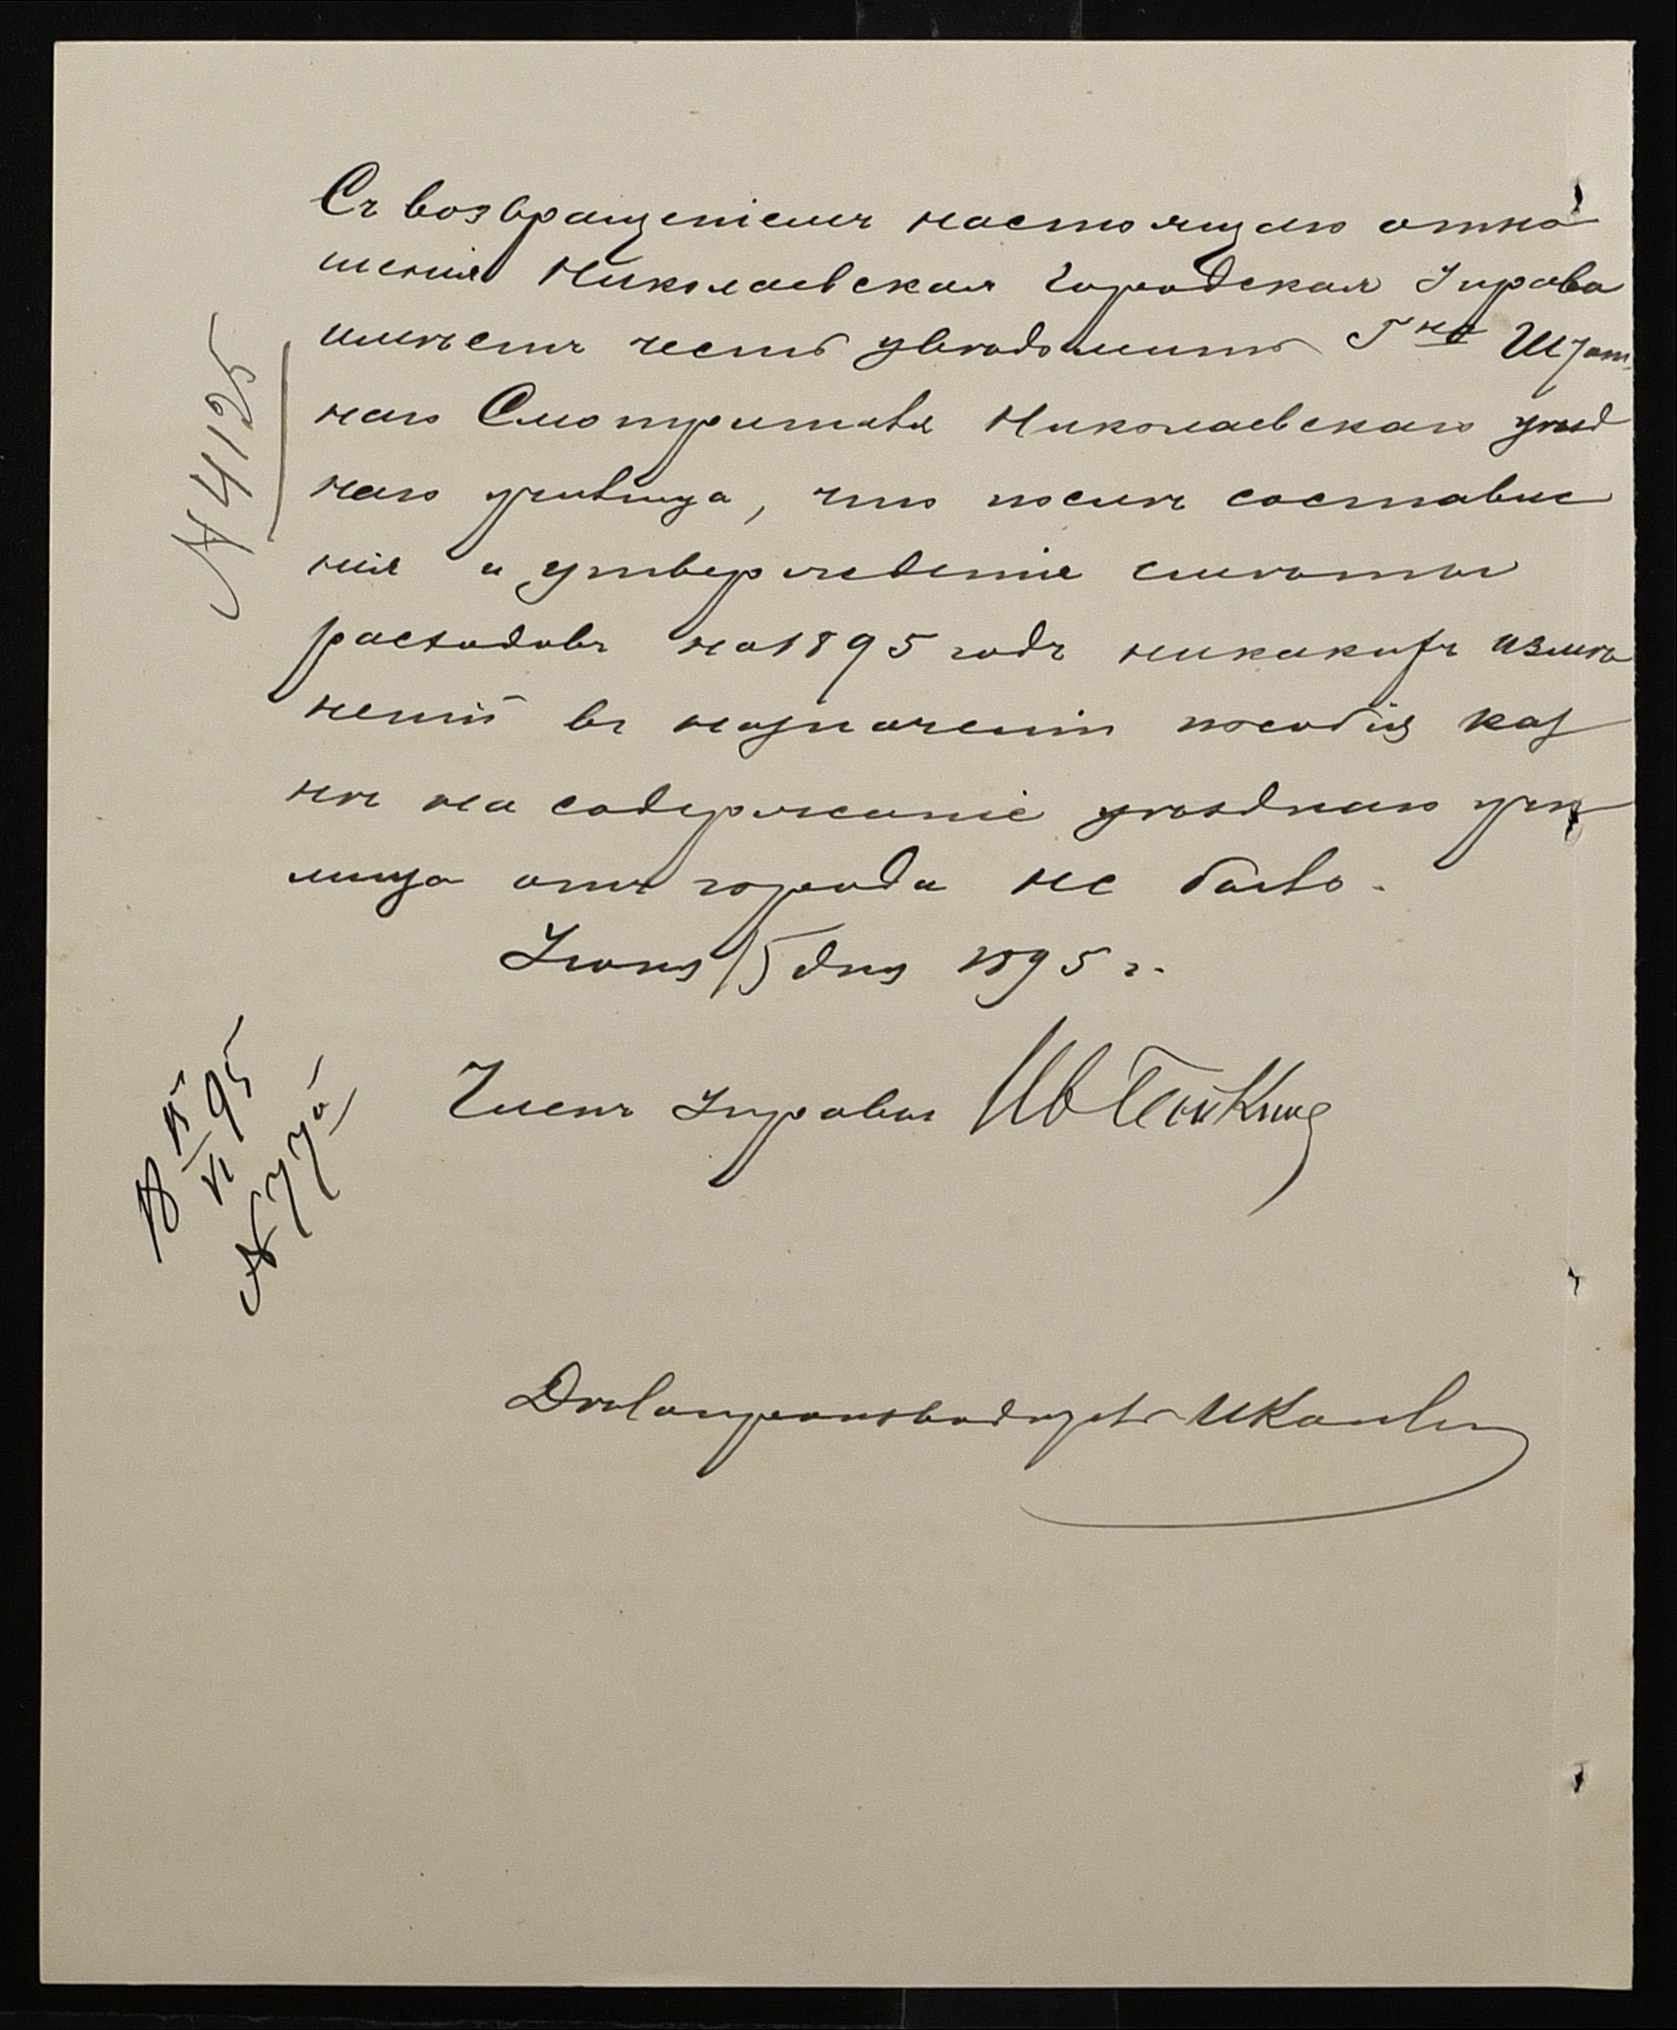 Съ возвращеніемъ настоящаго отно
шенія Николаевская Городская Управа
имѣетъ честь увѣдомить Гна Штат
наго Смотрителя Николаевскаго уѣзд
наго училища, что послѣ составле
нія и утвержденія смѣты
расходовъ на 1895 годъ никакихъ измѣ
неній въ назначеніи пособія каз
нѣ на содержаніе уѣзднаго учи
лища отъ города не было.
Іюня 15 дня 1895 г.
Членъ Управы Ив
Дѣлопроизводитель
№ 4125
15/VI 95
№ 770